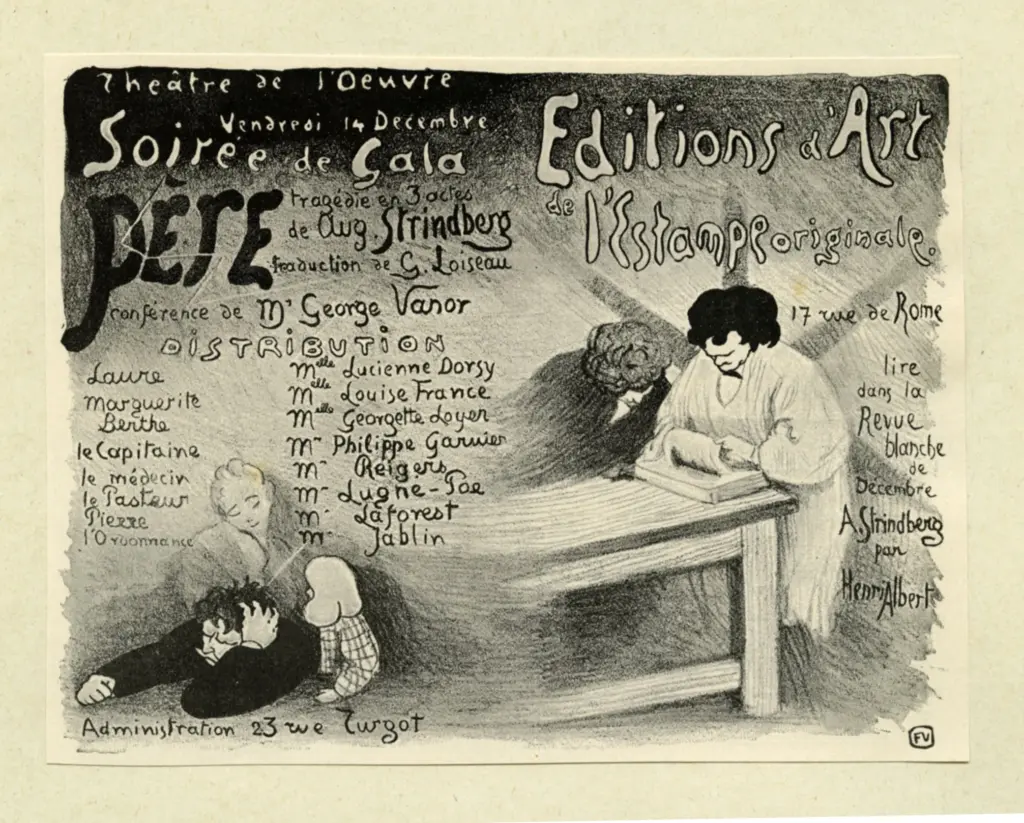 Théâtre de l'Oeuvre
Vendredi 14 Decembre
Soirée de Gala
PÈRE
tragédie en 3 actes
de Aug. Strindberg
traduction de G. Loiseau
conférence de Mr George Vanor
DISTRIBUTION
Laure Melle Lucienne Dorsy
Marguerite Melle Louise France
Berthe Melle Georgette Loyer
le Capitaine Mr Philippe Garnier
le médecin Mr Reigers
le Pasteur Mr Lugné-Poe
Pierre Mr Laforest
l'Ordonnance Mr Jablin
Administration 23 rue Turgot
Editions d'Art
de l'Estampe originale.
17 rue de Rome
lire
dans la
Revue
blanche
de
Décembre
A. Strindberg
par
Henri Albert
FV